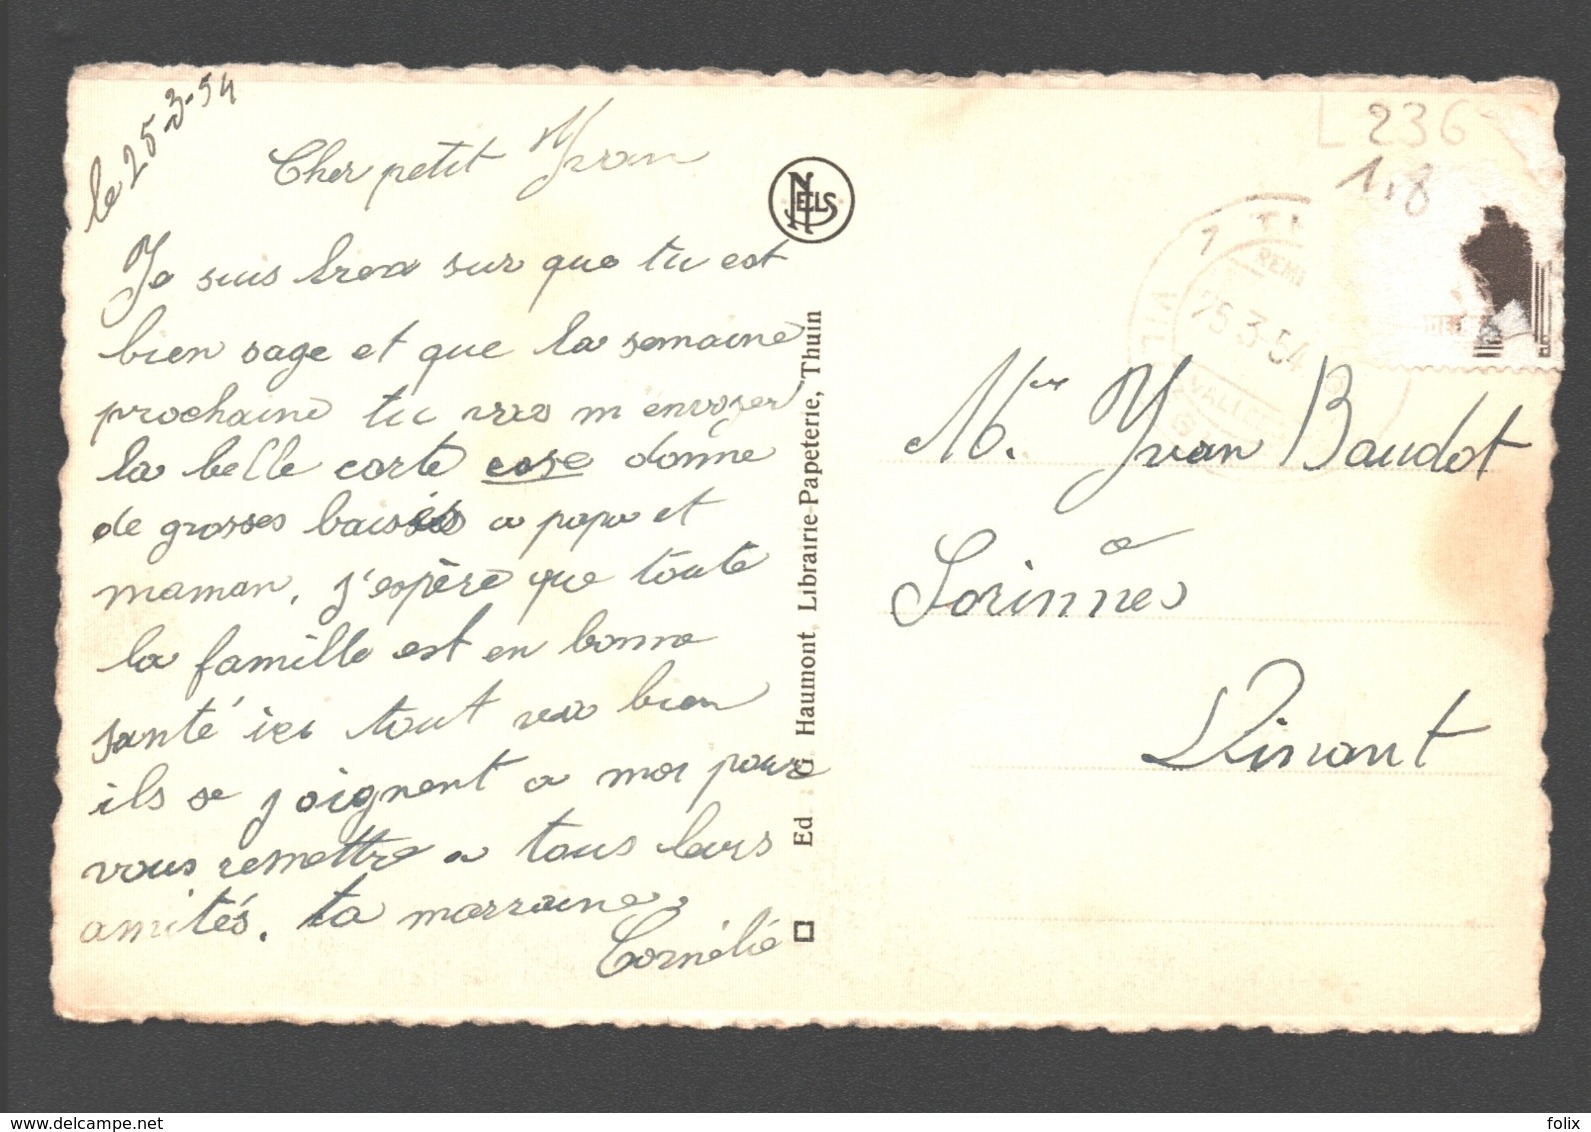 le 25-3-54
Cher petit Yvan
Je suis sur que tu est
bien sage et que la semaine
prochaine tu vas m'envoyer
la belle carte donne
de grosses a papa et
maman. j'espère que toute
la famille est en bonne
santé ici tout va bien
ils se joignent a moi pour
vous remettre a tous leurs
amités. ta marraine,
Cornélie
NELS
Ed. G. Haumont, Librairie-Papeterie, Thuin
L 236
1,8
1 T
REMP
25-3-54
VALLEE
VILL
Mr. Yvan Baudot
a
Sorinnes
Dinant
www.delcampe.net
folix